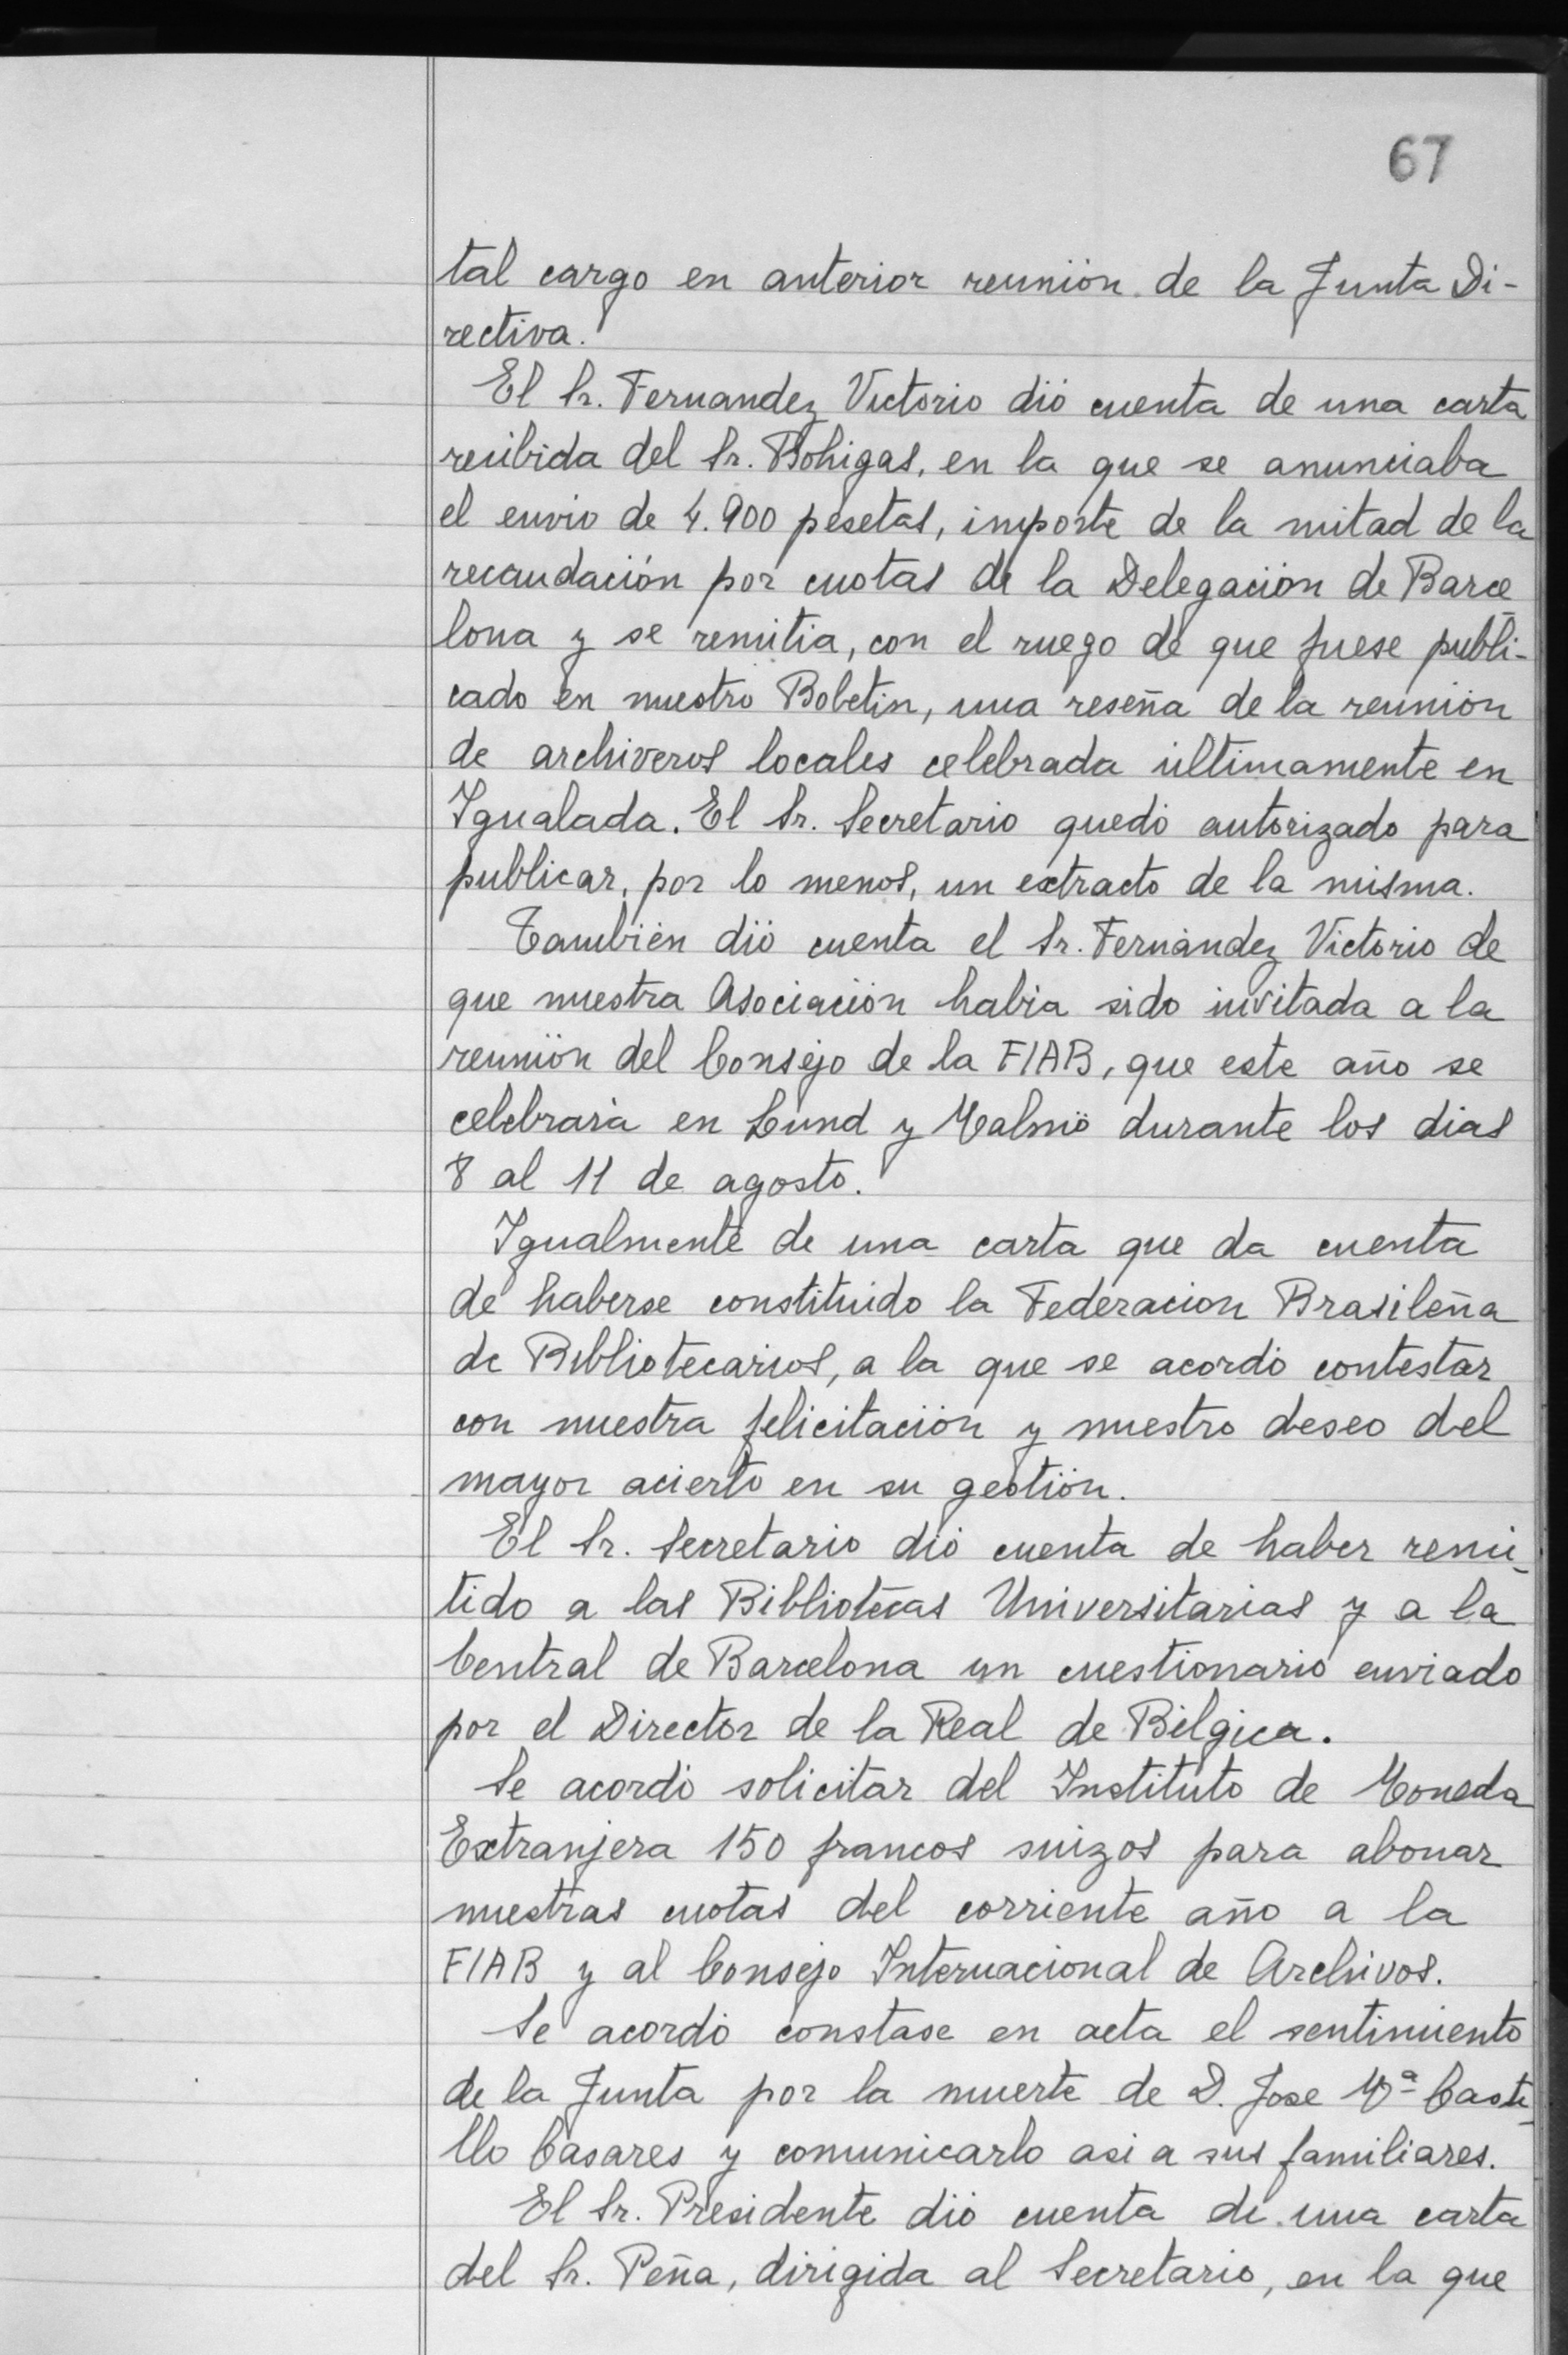 67
tal cargo en anterior reunión de la Junta Di-
rectiva.
El Sr. Fernandez Victorio dió cuenta de una carta
recibida del Sr. Bohigas, en la que se anunciaba
el envio de 4.900 pesetas, importe de la mitad de la
recaudación por cuotas de la Delegación de Barce-
lona y se remitia, con el ruego de que fuese publi-
cado en nuestro Boletin, una reseña de la reunión
de archiveros locales celebrada últimamente en
Igualada. El Sr. Secretario quedó autorizado para
publicar, por lo menos, un extracto de la misma.
También dió cuenta el Sr. Fernández Victorio de
que nuestra Asociación habia sido invitada a la
reunión del Consejo de la FIAB, que este año se
celebrará en Lund y Malmö durante los dias
8 al 11 de agosto.
Igualmente de una carta que da cuenta
de haberse constituido la Federacion Brasileña
de Bibliotecarios, a la que se acordó contestar
con nuestra felicitación y nuestro deseo del
mayor acierto en su gestión.
El Sr. Secretario dió cuenta de haber remi-
tido a las Bibliotecas Universitarias y a la
Central de Barcelona un cuestionario enviado
por el Director de la Real de Bélgica.
Se acordó solicitar del Instituto de Moneda
Extranjera 150 francos suizos para abonar
nuestras cuotas del corriente año a la
FIAB y al Consejo Internacional de Archivos.
Se acordó constase en acta el sentimiento
de la Junta por la muerte de D. Jose Mª Casti-
llo Casares y comunicarlo asi a sus familiares.
El Sr. Presidente dió cuenta de una carta
del Sr. Peña, dirigida al Secretario, en la que